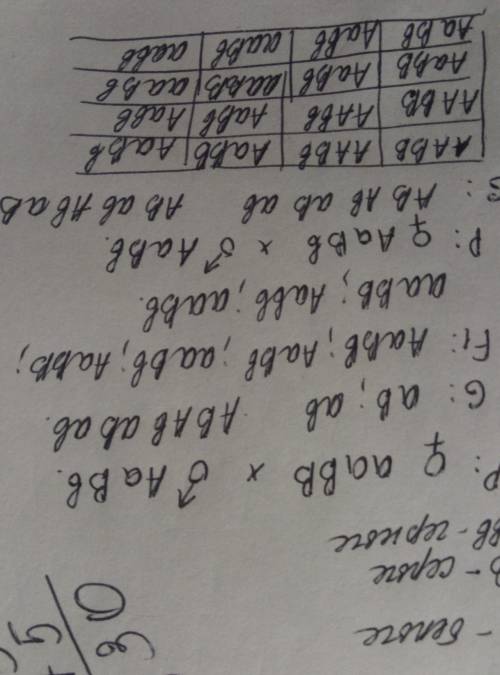 - белые
В - серые
ВВ - черные
P: ♀ aaBB x ♂ AaBb.
G: aB; aB AB Ab aB ab.
F1: AaBB; AaBb; aaBb; AaBB;
aaBB; AaBb; aaBb.
P: ♀ AaBb x ♂ AaBb.
G: AB Ab aB ab AB ab Ab aB
AABB AABb AaBB AaBb
AABb AAbb AaBb Aabb
AaBB AaBb aaBB aaBb
AaBb Aabb aaBb aabb